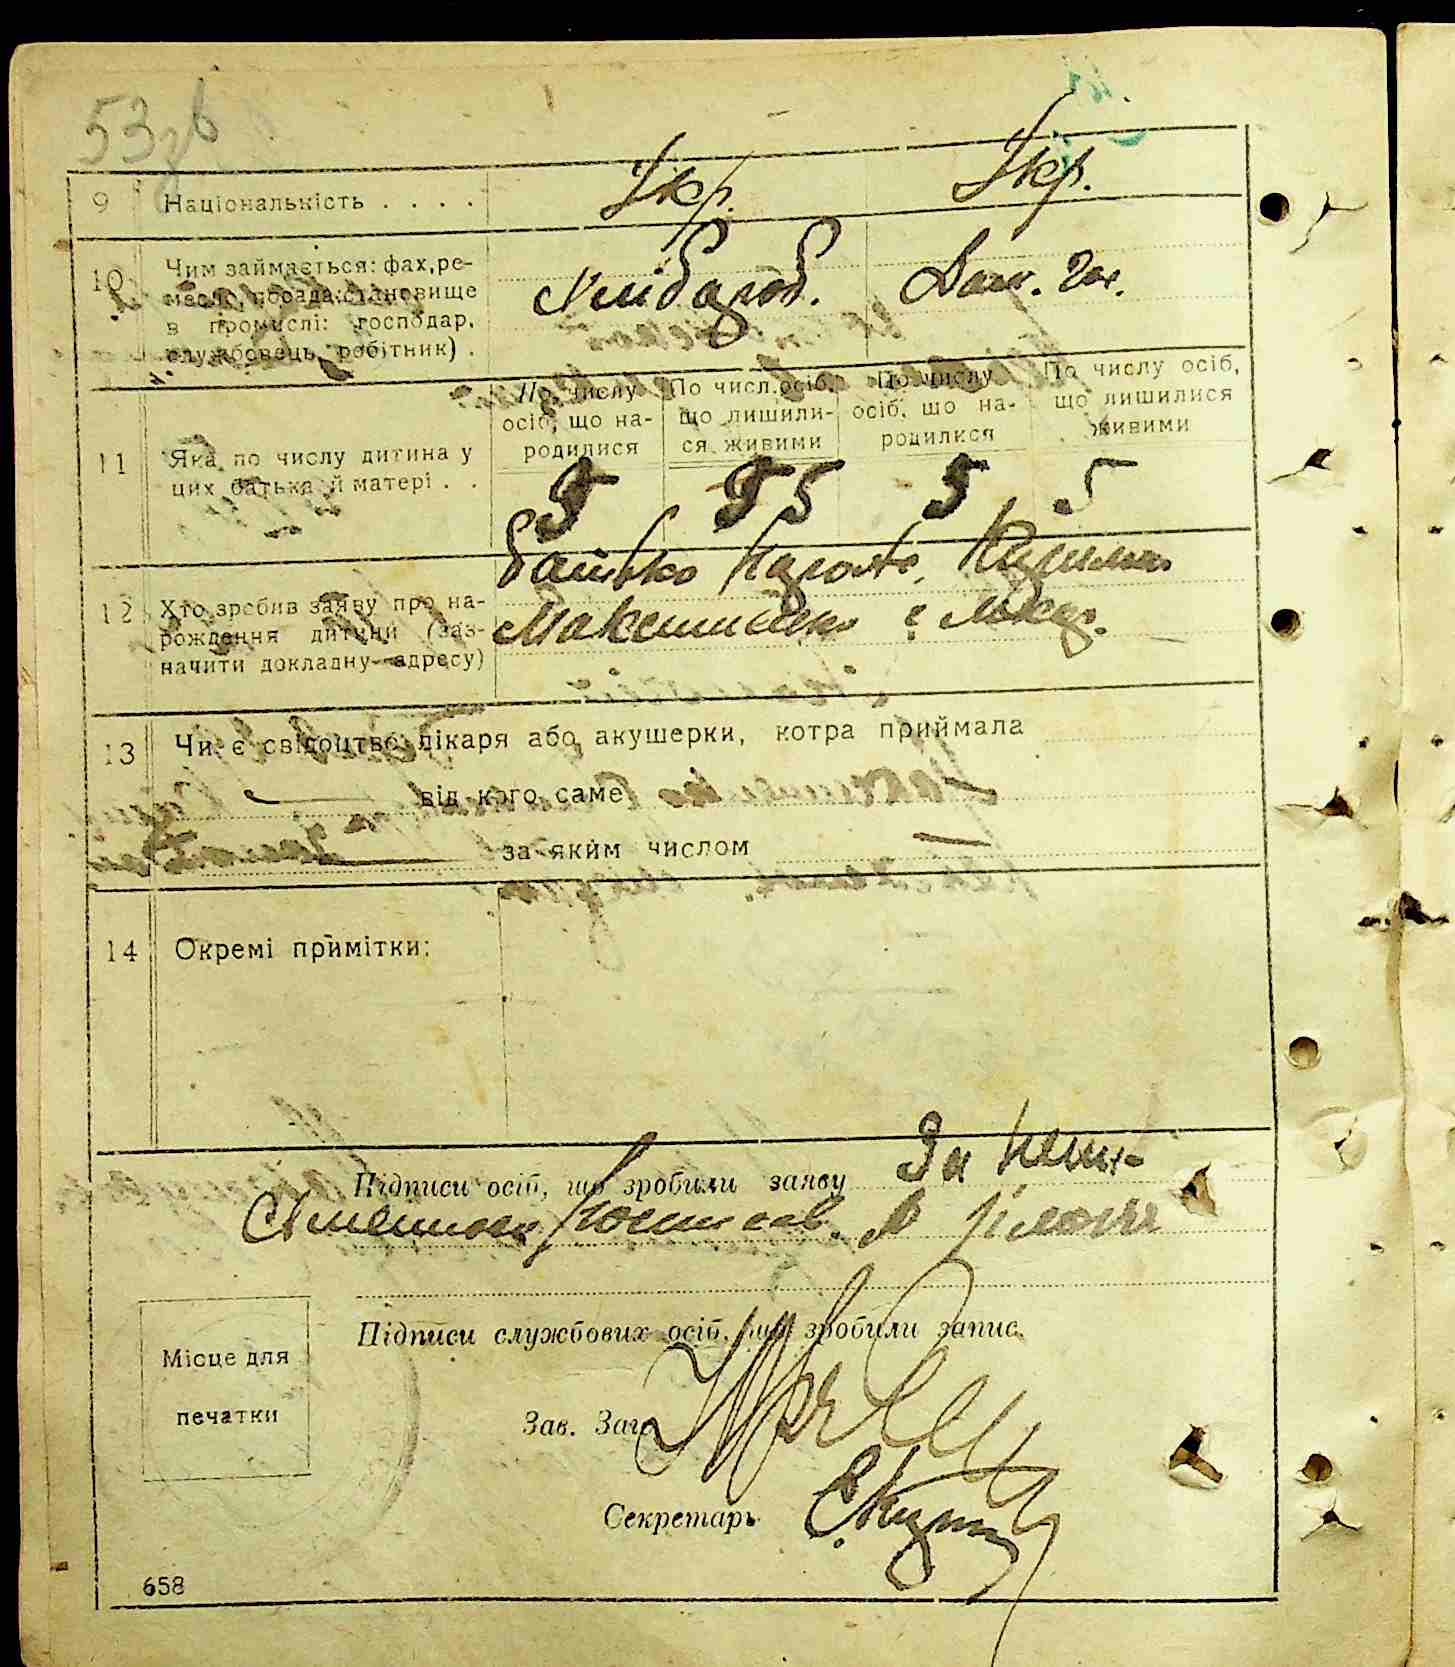 53 зв
9 Національність . . . . Укр. Укр.
10 Чим займається: фах, ре-
месло, посада становище
в промислі: господар,
службовець, робітник) .
Хлібороб. Дом. Гос.
11 Яка по числу дитина у
цих батька й матері . .
По числу
осіб, що на-
родилися
По числ. осіб,
що лишили-
ся живими
По числу
осіб, що на-
родилися
По числу осіб,
що лишилися
живими
5 5 5 5
12 Хто зробив заяву про на-
рождення дитини (заз-
начити докладну адресу)
батько
13 Чи є свідоцтво лікаря або акушерки, котра приймала
від кого саме
за яким числом —
14 Окремі примітки:
Підписи осіб, що зробили заяву За
Підписи службових осіб, що зробили запис.
Зав. Заг
Місце для
печатки
Секретарь
658